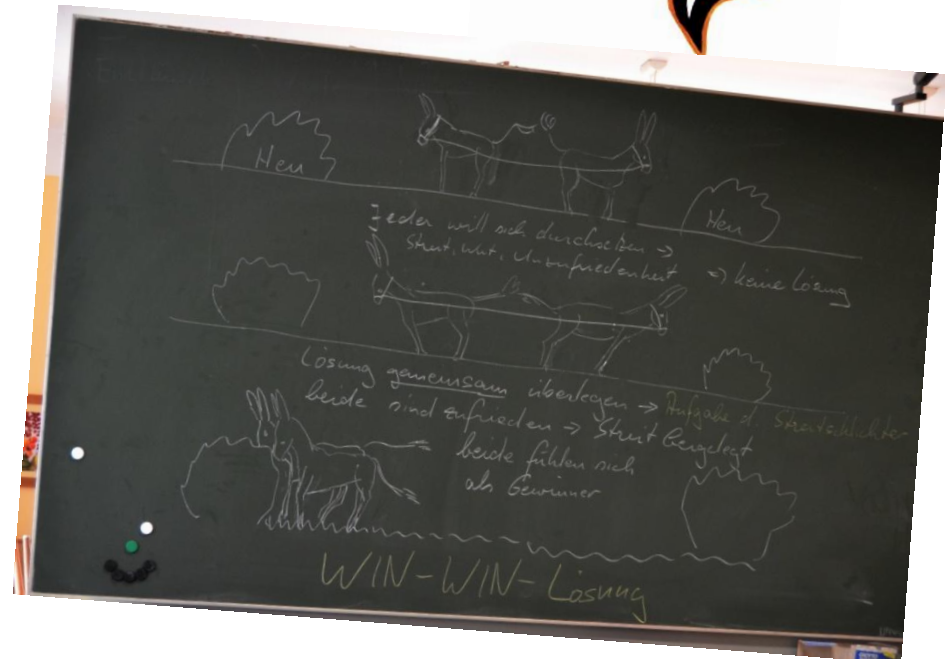 Heu
Heu
Jeder will sich durchsetzen →
Streit, Wut, Unzufriedenheit → keine Lösung
Lösung gemeinsam überlegen → Aufgabe d. Streitschlichter
beide sind zufrieden → Streit beigelegt
beide fühlen sich
als Gewinner
WIN-WIN-Lösung